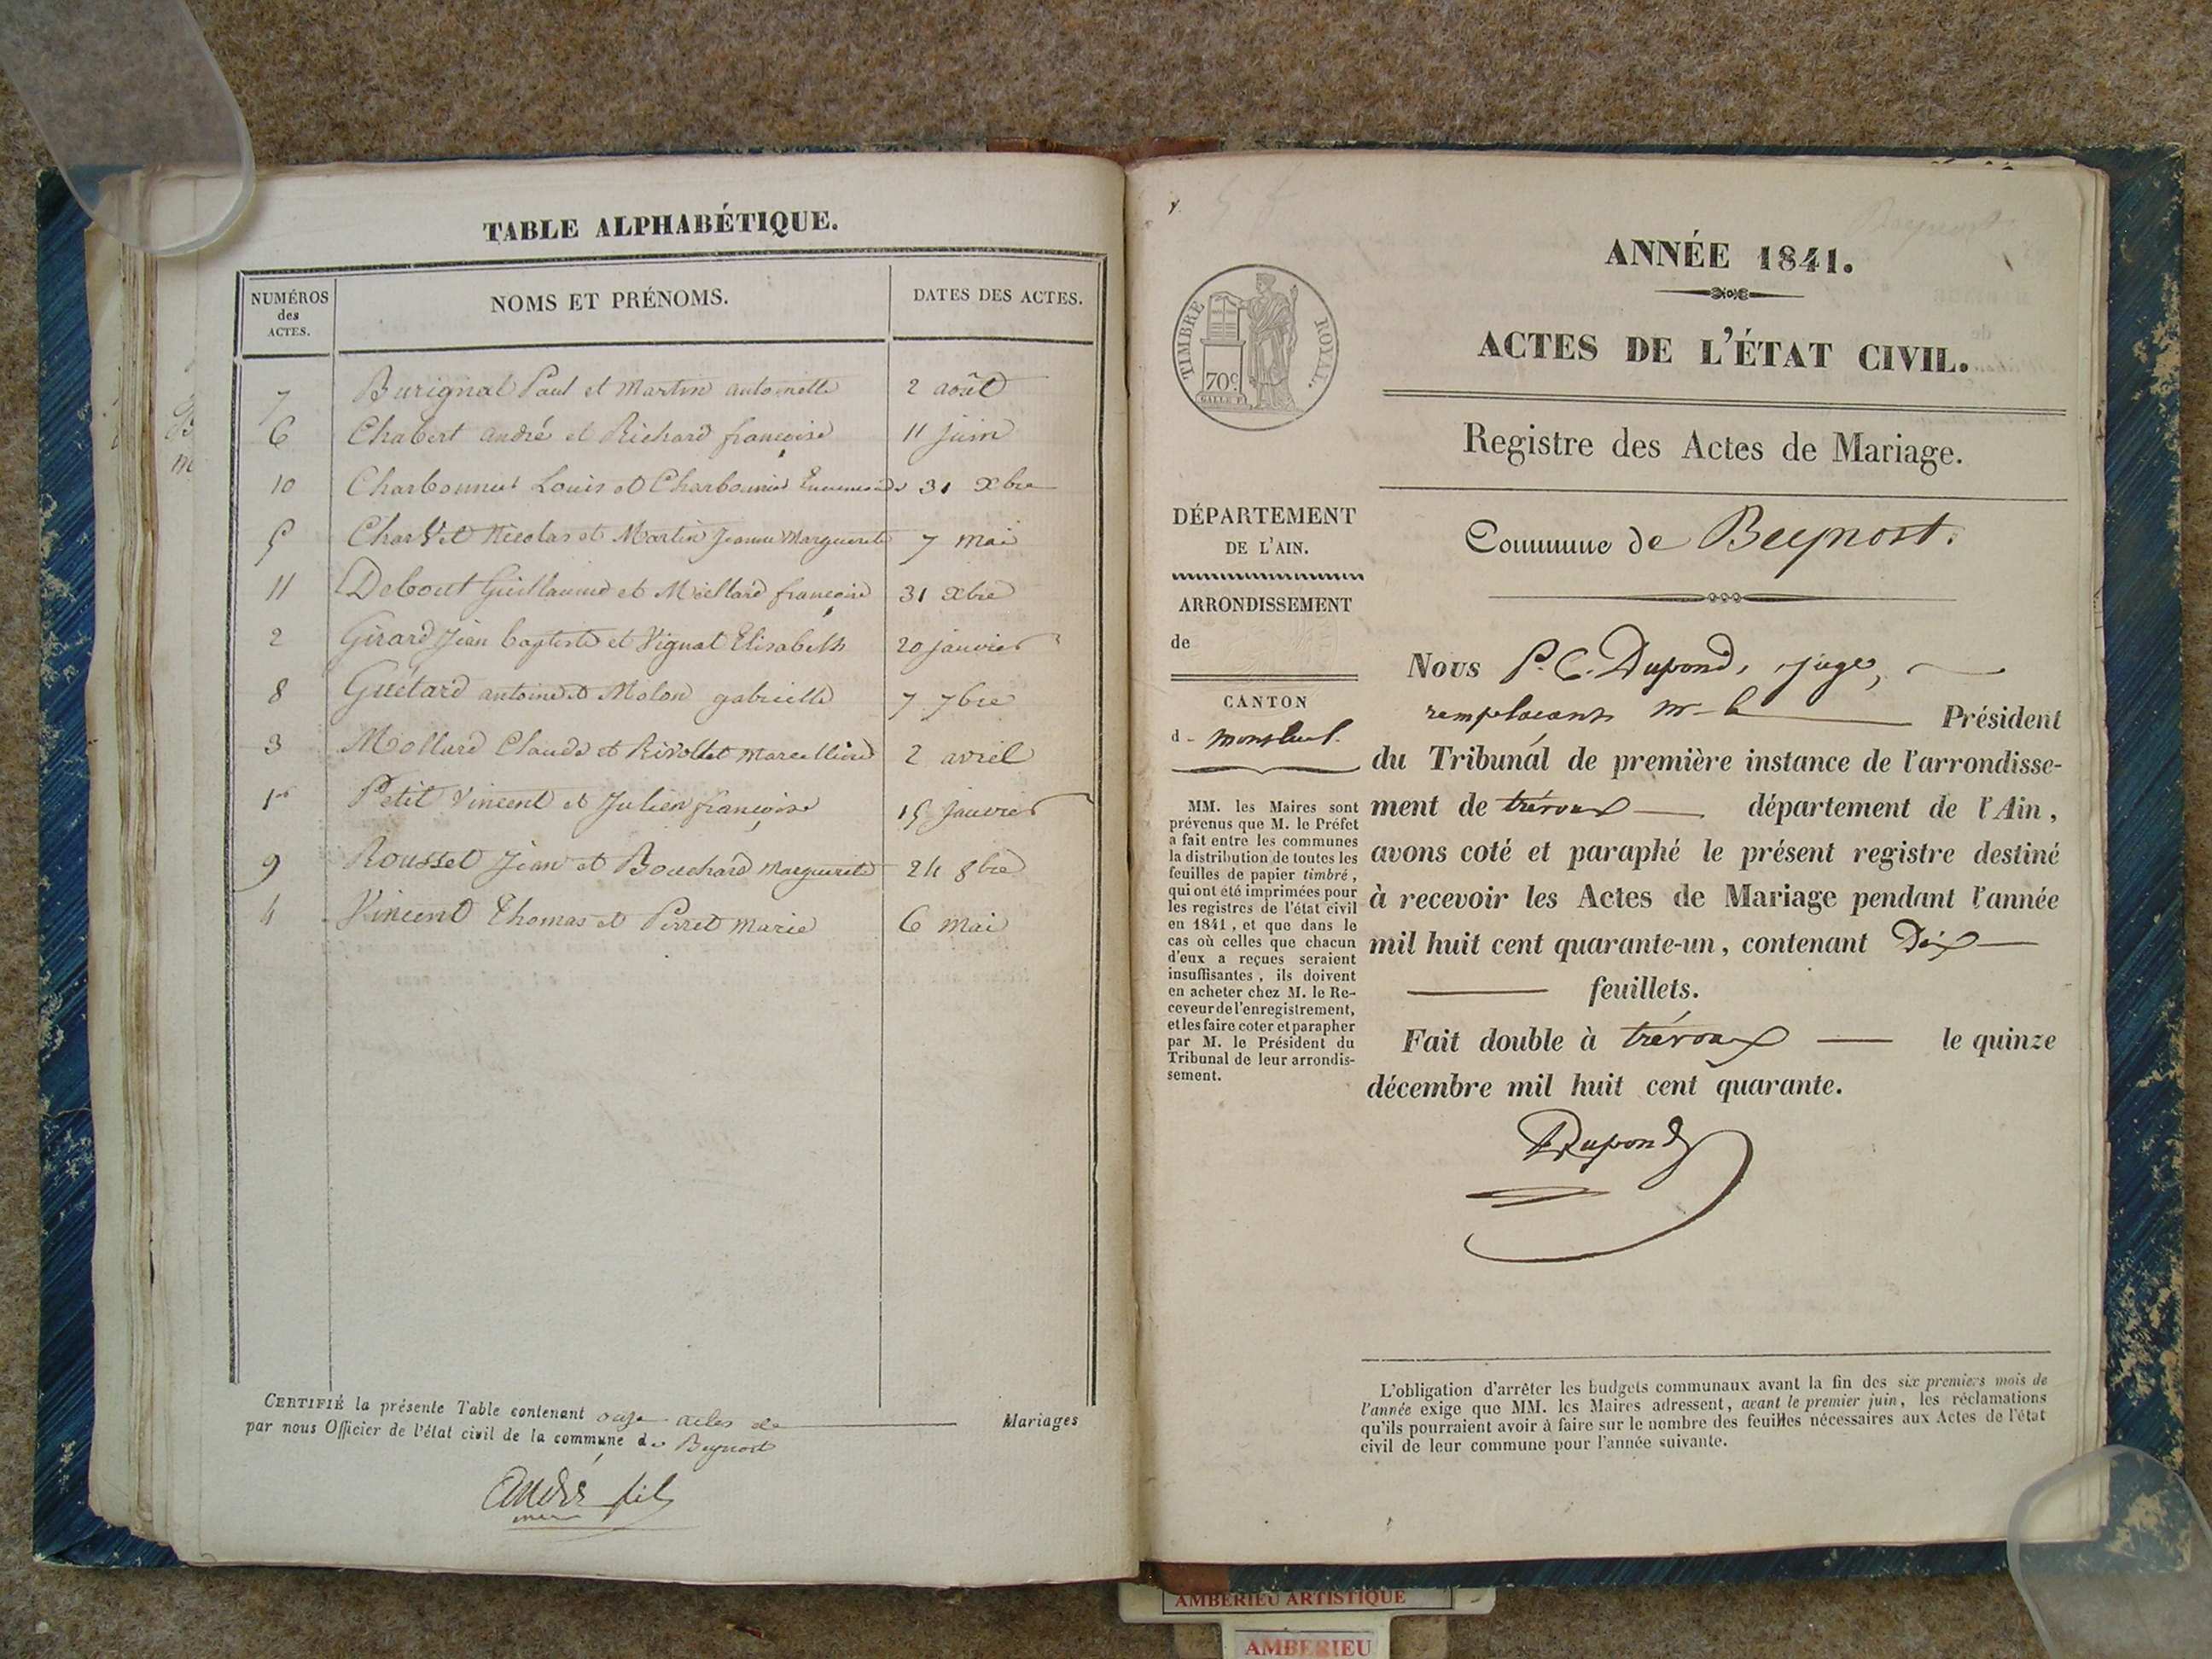 TABLE ALPHABÉTIQUE.
NUMÉROS des ACTES.
NOMS ET PRÉNOMS.
DATES DES ACTES.
7 Burignat Paul et Martin antoinette 2 août
6 Chabert andré et Richard françoise 11 juin
10 Charbonnet Louis et Charbonnier 31 Xbre
5 Charvet Nicolas et Martin Jeanne Marguerite 7 mai
11 Debout Guillaume et Mollard françoise 31 Xbre
2 Girard Jean baptiste et Vignat Elisabeth 20 janvier
8 Guétard antoine et Molon gabrielle 7 7bre
3 Mollard Claude et Rivollet Marcelline 2 avril
1er Petit Vincent et Julien françoise 15 janvier
9 Rousset Jean et Bouchard Marguerite 24 8bre
4 Vincent Thomas et Perret Marie 6 Mai
CERTIFIÉ la présente Table contenant onze actes de Mariages
par nous Officier de l'état civil de la commune de Beynost
André fils
Beynost
ANNÉE 1841.
ACTES DE L'ÉTAT CIVIL.
TIMBRE ROYAL.
70c
Registre des Actes de Mariage.
DÉPARTEMENT
DE L'AIN.
ARRONDISSEMENT
de
CANTON
d - Montluel.
MM. les Maires sont
prévenus que M. le Préfet
a fait entre les communes
la distribution de toutes les
feuilles de papier timbré,
qui ont été imprimées pour
les registres de l'état civil
en 1841, et que dans le
cas où celles que chacun
d'eux a reçues seraient
insuffisantes, ils doivent
en acheter chez M. le Re-
ceveur de l'enregistrement,
et les faire coter et parapher
par M. le Président du
Tribunal de leur arrondis-
sement.
Commune de Beynost.
Nous P. C. Dupond, juge,
remplaçant Mr le Président
du Tribunal de première instance de l'arrondisse-
ment de trévoux département de l'Ain,
avons coté et paraphé le présent registre destiné
à recevoir les Actes de Mariage pendant l'année
mil huit cent quarante-un, contenant Dix
feuillets.
Fait double à trévoux le quinze
décembre mil huit cent quarante.
Dupond
L'obligation d'arrêter les budgets communaux avant la fin des six premiers mois de
l'année exige que MM. les Maires adressent, avant le premier juin, les réclamations
qu'ils pourraient avoir à faire sur le nombre des feuilles nécessaires aux Actes de l'état
civil de leur commune pour l'année suivante.
AMBERIEU ARTISTIQUE
AMBERIEU